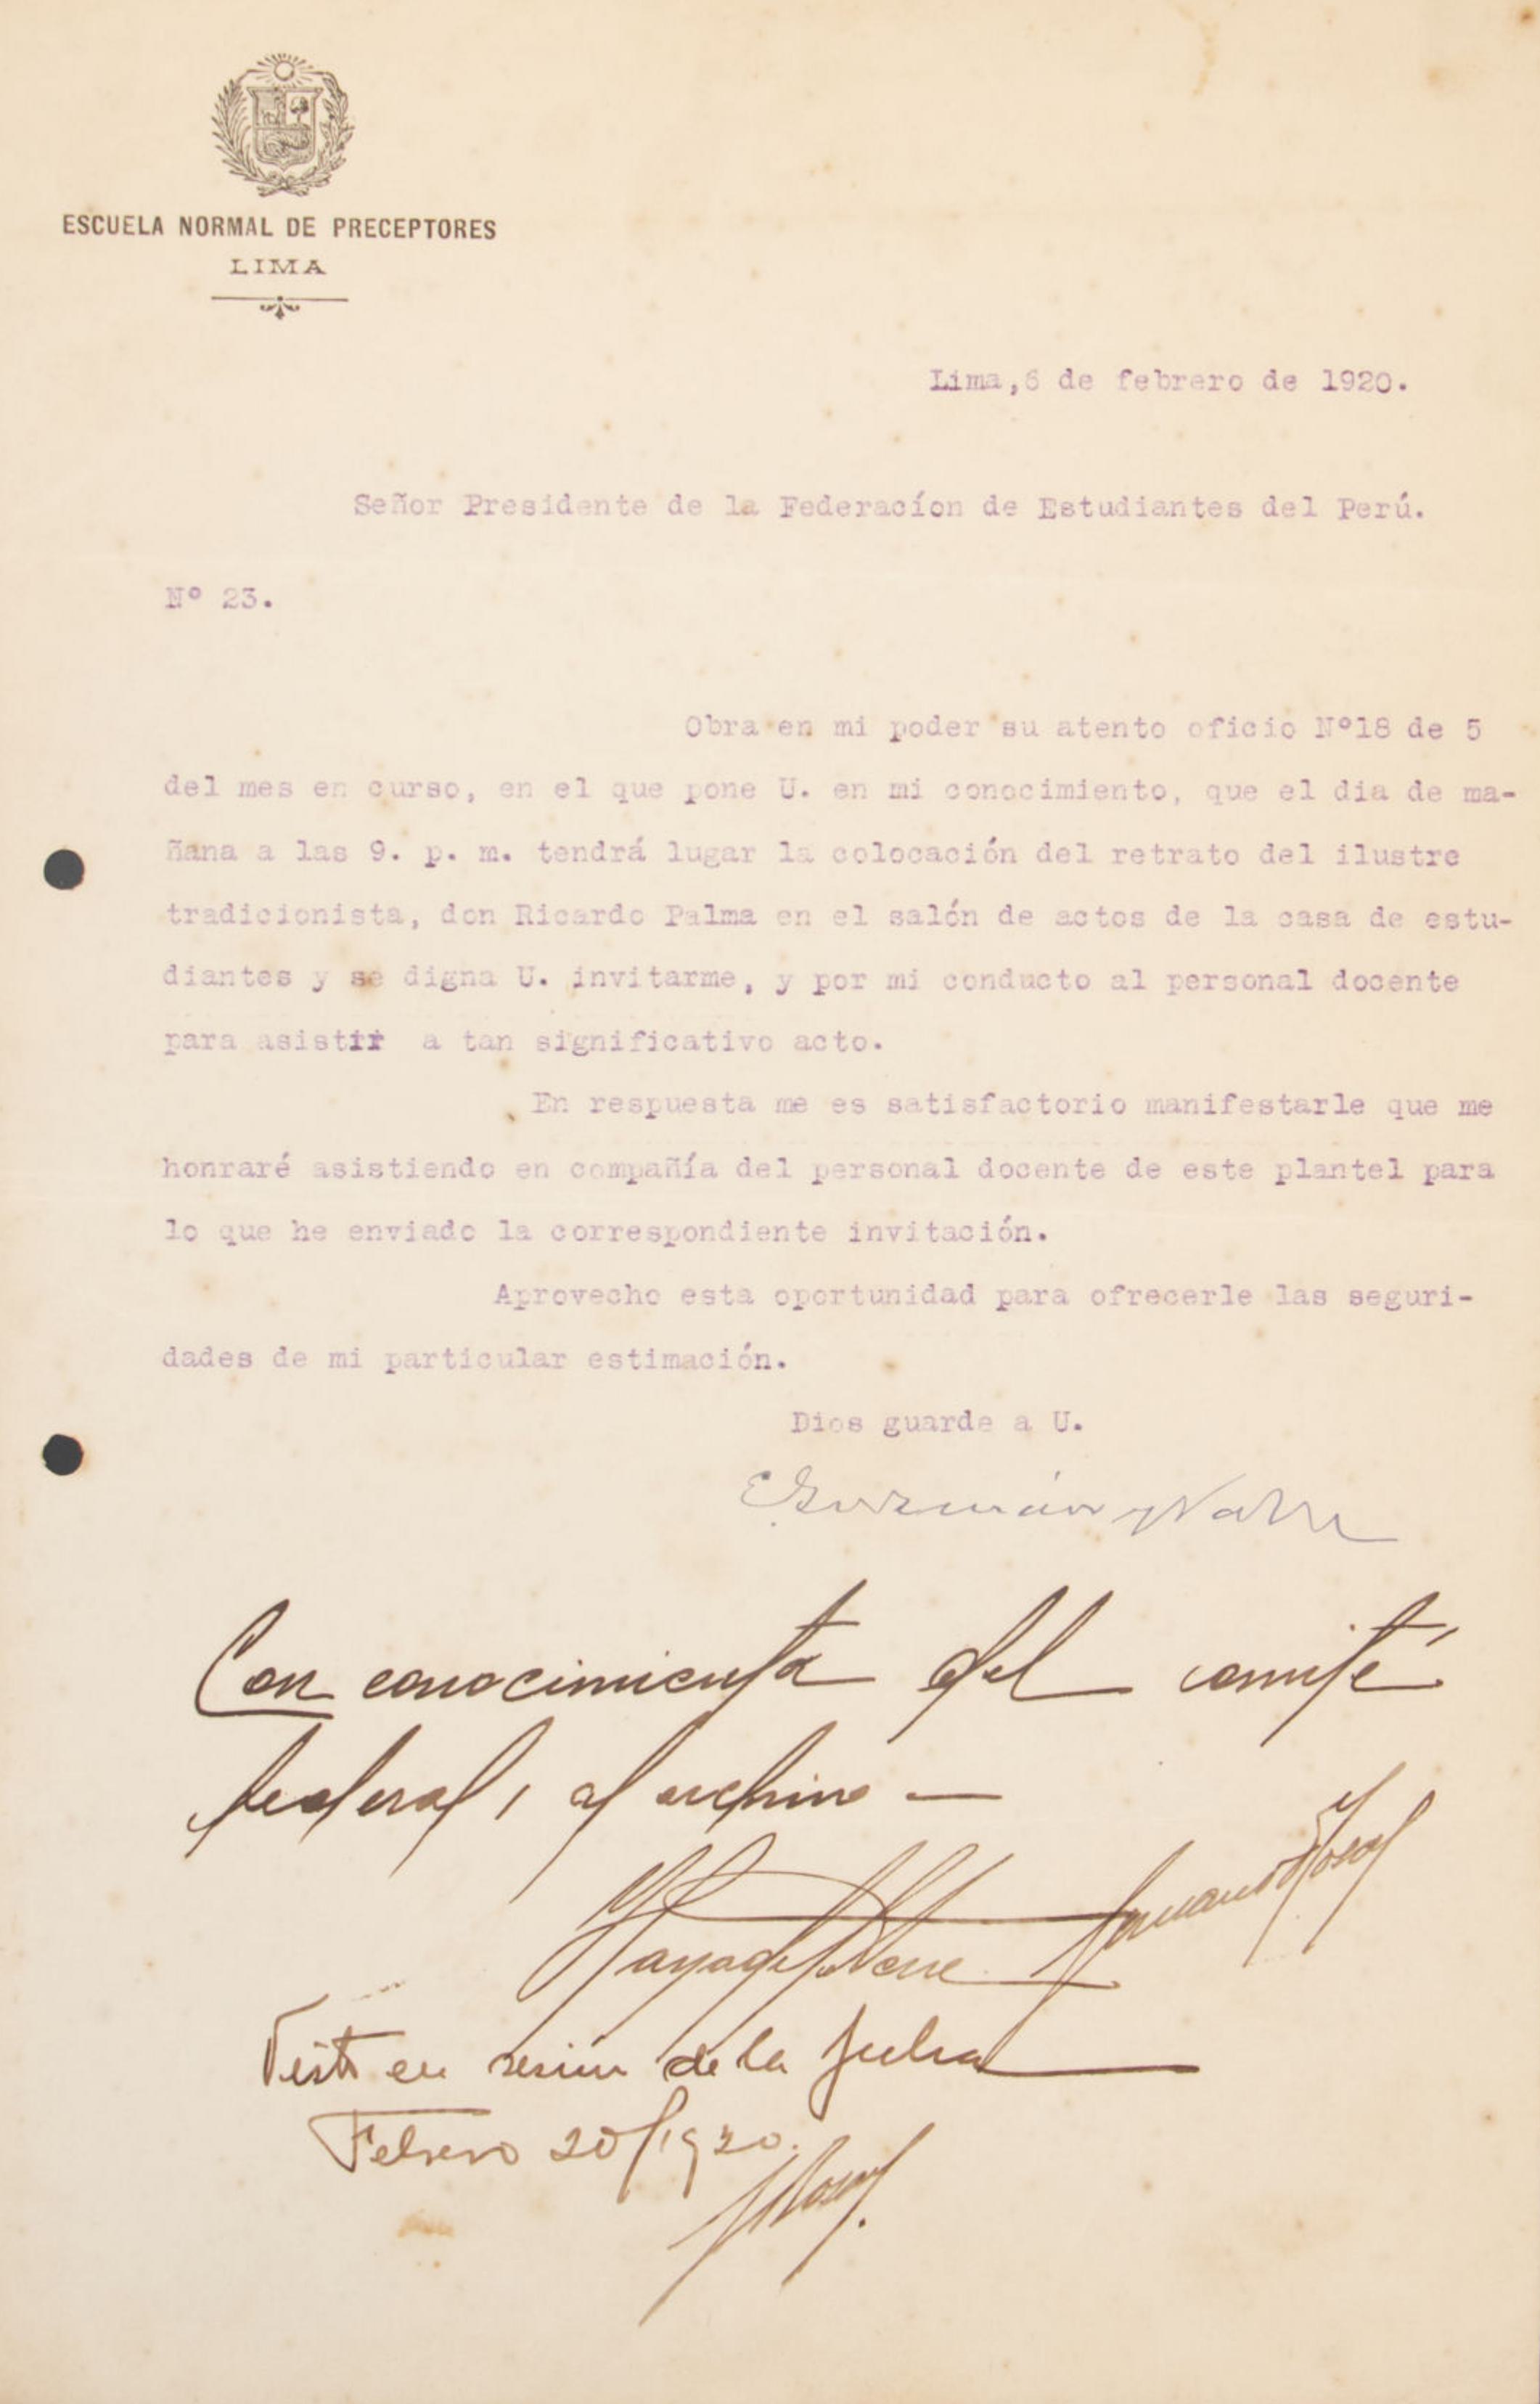 ESCUELA NORMAL DE PRECEPTORES
LIMA
Lima,6 de febrero de 1920.
Señor Presidente de la Federacíon de Estudiantes del Perú.
Nº 23.
Obra en mi poder su atento oficio Nº18 de 5
del mes en curso, en el que pone U. en mi conocimiento, que el dia de ma-
ñana a las 9. p. m. tendrá lugar la colocación del retrato del ilustre
tradicionista, don Ricardo Palma en el salón de actos de la casa de estu-
diantes y se digna U. invitarme, y por mi conducto al personal docente
para asistir a tan significativo acto.
En respuesta me es satisfactorio manifestarle que me
honraré asistiendo en compañía del personal docente de este plantel para
lo que he enviado la correspondiente invitación.
Aprovecho esta oportunidad para ofrecerle las seguri-
dades de mi particular estimación.
Dios guarde a U.
Guzmán y Valle
Con conocimiento del comité
federal, al archivo —
Haya de la Torre
Visto en sesión de la fecha
Febrero 20/1920.